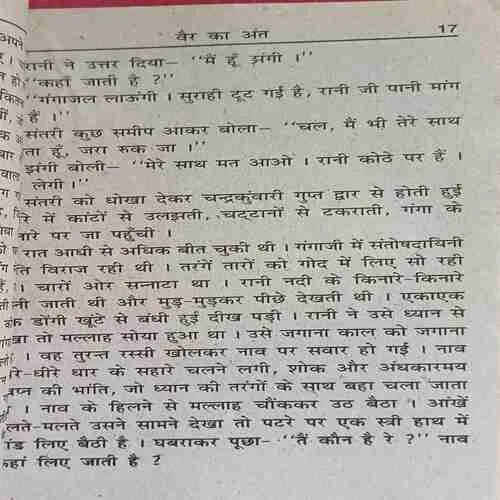 वैर का अंत 17
रानी ने उत्तर दिया– ''मैं हूँ झंगी ।''
''कहां जाती है ?''
''गंगाजल लाऊंगी । सुराही टूट गई है, रानी जी पानी मांग
हैं ।''
संतरी कुछ समीप आकर बोला– ''चल, मैं भी तेरे साथ
ता हूँ, जरा रुक जा ।''
झंगी बोली– ''मेरे साथ मत आओ । रानी कोठे पर हैं ।
लेगी ।''
संतरी को धोखा देकर चन्द्रकुंवारी गुप्त द्वार से होती हुई
रे में कांटों से उलझती, चट्टानों से टकराती, गंगा के
नारे पर जा पहुंची ।
रात आधी से अधिक बीत चुकी थी । गंगाजी में संतोषदायिनी
ति विराज रही थी । तरंगें तारों को गोद में लिए सो रही
। चारों ओर सन्नाटा था । रानी नदी के किनारे-किनारे
ती जाती थी और मुड़-मुड़कर पीछे देखती थी । एकाएक
डोंगी खूंटे से बंधी हुई दीख पड़ी । रानी ने उसे ध्यान से
खा तो मल्लाह सोया हुआ था । उसे जगाना काल को जगाना
। वह तुरन्त रस्सी खोलकर नाव पर सवार हो गई । नाव
रे-धीरे धार के सहारे चलने लगी, शोक और अंधकारमय
प्न की भांति, जो ध्यान की तरंगों के साथ बहा चला जाता
। नाव के हिलने से मल्लाह चौंककर उठ बैठा । आंखें
लते-मलते उसने सामने देखा तो पटरे पर एक स्त्री हाथ में
ांड लिए बैठी है । घबराकर पूछा– ''तैं कौन है रे ?'' नाव
कहां लिए जाती है ?